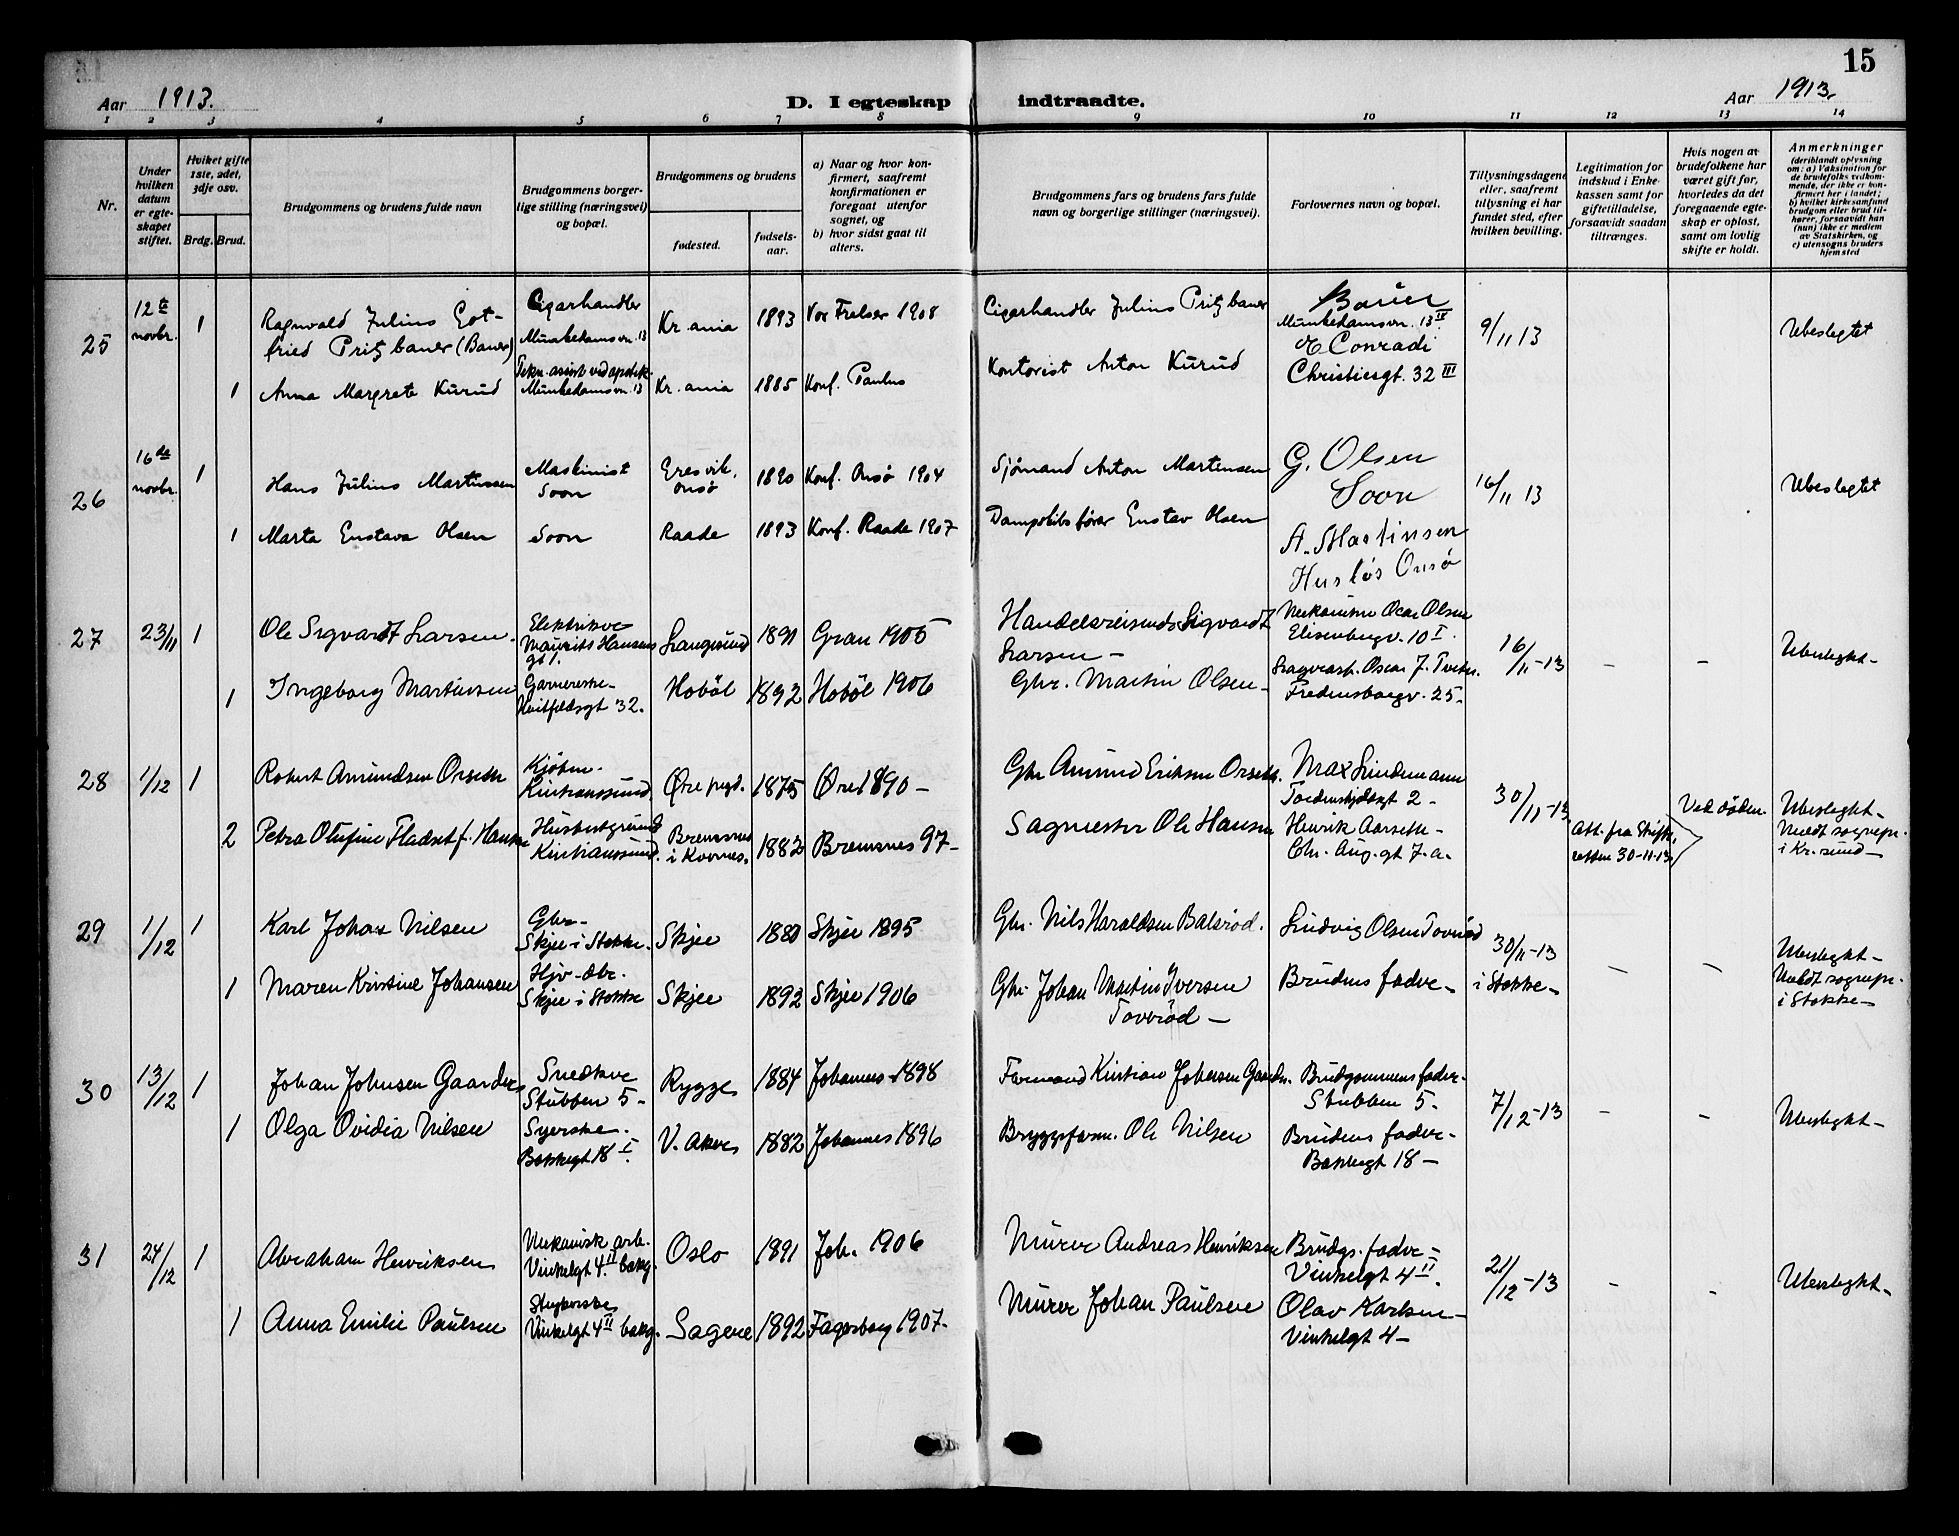 15
Aar 1913.
D. I egteskap indtraadte.
Aar 1913.
1 2 3 4 5 6 7 8 9 10 11 12 13 14
Nr.
Under hvilken datum er egteskapet stiftet.
Hvilket gifte 1ste, 2det, 3dje osv.
Brdg. Brud.
Brudgommens og brudens fulde navn
Brudgommens borgerlige stilling (næringsvei) og bopæl.
Brudgommens og brudens
fødested.
fødselsaar.
a) Naar og hvor konfirmert, saafremt konfirmationen er foregaat utenfor sognet, og
b) hvor sidst gaat til alters.
Brudgommens fars og brudens fars fulde navn og borgerlige stillinger (næringsvei).
Forlovernes navn og bopæl.
Tillysningsdagene eller, saafremt tillysning ei har fundet sted, efter hvilken bevilling.
Legitimation for indskud i Enkekassen samt for giftetilladelse, forsaavidt saadan tiltrænges.
Hvis nogen av brudefolkene har været gift før, hvorledes da det foregaaende egteskap er opløst, samt om lovlig skifte er holdt.
Anmerkninger
(deriblandt oplysning om: a) Vaksination for de brudefolks vedkommende, der ikke er konfirmert her i landet; b) hvilket kirkesamfund brudgom eller brud tilhører, forsaavidt han (hun) ikke er medlem av Statskirken, og c) utensogns bruders hjemsted
25 12te novbr. 1 Ragnvald Julius Gotfried Pritzbauer (Bauer) Cigarhandler Munkedamsvn. 13 Kr.ania 1893 Vor Frelser 1908 Cigarhandler Julius Pritzbauer Bauer Munkedamsvn. 13 IV 9/11 13 Ubeslegtet
1 Anna Margrete Kurud Tekn. assist ved apotek. Munkedamsvn. 13 Kr.ania 1885 Konf. Paulus Kontorist Anton Kurud E Conradi Christiesgt. 32 III
26 16de novbr. 1 Hans Julius Martinsen Maskinist Soon Gresvik, Onsø 1890 Konf. Onsø 1904 Sjømand Anton Martensen G. Olsen Soon 16/11 13 Ubeslegtet
1 Marta Gustava Olsen Soon Raade 1893 Konf. Raade 1907 Dampskibsfører Gustav Olsen A. Martinsen Husløs Onsø
27 23/11 1 Ole Sigvardt Larsen. Elektriker Maurits Hansens gt 1. Langesund 1891 Gran 1905 Handelsreisende Sigvardt Larsen – Oscar Olsen Elisenbergv. 10 I. 16/11-13 – – Ubesleght –
1 Ingeborg Martinsen Huitfeldtsgt 32. Hobøl 1892 Hobøl 1906 Gbr. Martin Olsen – Oscar J. Fredensborgv. 25.
28 1/12 1 Robert Amundsen Orseth Kristianssund. Øre prgd. 1875 Øre 1890 – Gbr Amund Eriksen Orseth. Max Lindemann Tordenskjoldsgt 2 – 30/11-13 Ubesleght –
2 Petra Olufine Fladset f. Hansen Kristianssund. Bremsnes i Kvernes. 1882 Bremsnes 97 – Sagmester Ole Hansen Henrik Aarseth – Chr. Aug. gt 7. a. Att. fra Skifteretten 30-11-13 Ved døden Meldt sognepr. i Kr.sund –
29 1/12 1 Karl Johan Nilsen Gbr – Skjee i Stokke. Skjee 1880 Skjee 1895 Gbr. Nils Haraldsen Balsrød. Ludvig Olsen Tovrød 30/11-13 – – Ubesleght –
1 Maren Kristine Johansen Hjv – dtr. Skjee i Stokke Skjee 1892 Skjee 1906 Gbr. Johan Martin Iversen Tovrød – Brudens fader – i Stokke – Meldt sognepr. i Stokke –
30 13/12 1 Johan Johnsen Gaarder Snedker Stubben 5 – Rygge 1884 Johannes 1898 Formand Kristian Johnsen Gaarder. Brudgommens fader – Stubben 5. 7/12-13 – – Ubesleght –
1 Olga Ovidia Nilsen Syerske. Bakkegt 18 I. V. Aker 1882 Johannes 1896 Bryggeform. Ole Nilsen Brudens fader – Bakkegt 18 –
31 24/12 1 Abraham Henriksen Mekanisk arb. Vinkelgt 4. II bakg. Oslo 1891 Joh. 1906 Murer Andreas Henriksen Brudgs. fader – Vinkelgt 4 II. 21/12-13 – – Ubesleght –
1 Anna Emilie Paulsen Strykerske Vinkelgt 4 II bakg. Sagene 1892 Fagerborg 1907. Murer Johan Paulsen Olav Karlsen – Vinkelgt 4 –